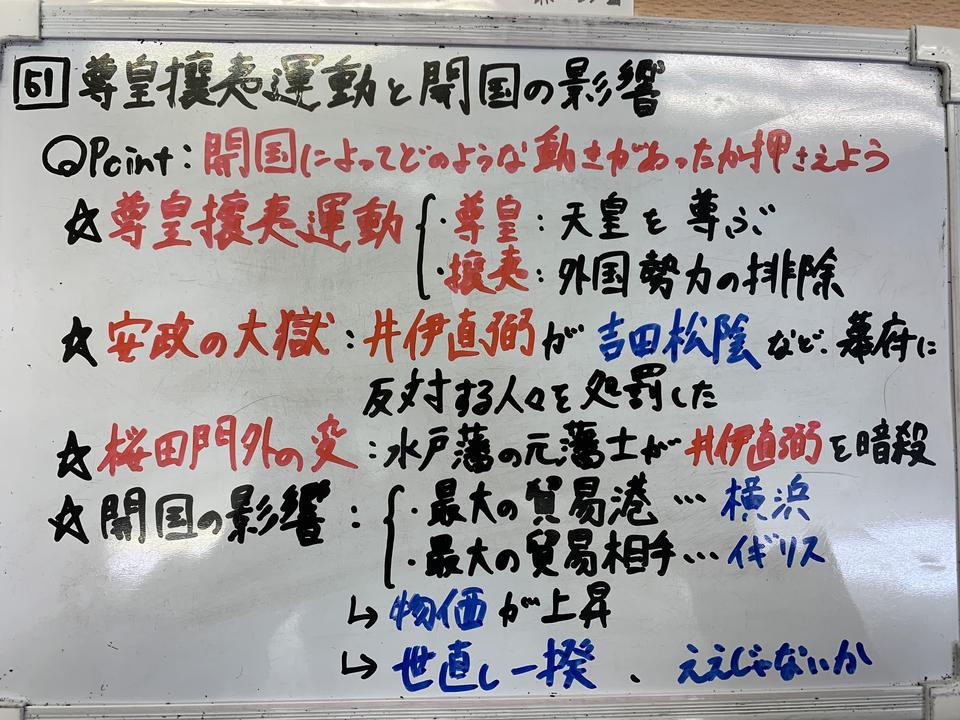 51 尊皇攘夷運動と開国の影響
Point：開国によってどのような動きがあったか押さえよう
☆尊皇攘夷運動 ・尊皇：天皇を尊ぶ
・攘夷：外国勢力の排除
☆安政の大獄：井伊直弼が吉田松陰など、幕府に
反対する人々を処罰した
☆桜田門外の変：水戸藩の元藩士が井伊直弼を暗殺
☆開国の影響：・最大の貿易港…横浜
・最大の貿易相手…イギリス
↳物価が上昇
↳世直し一揆、ええじゃないか